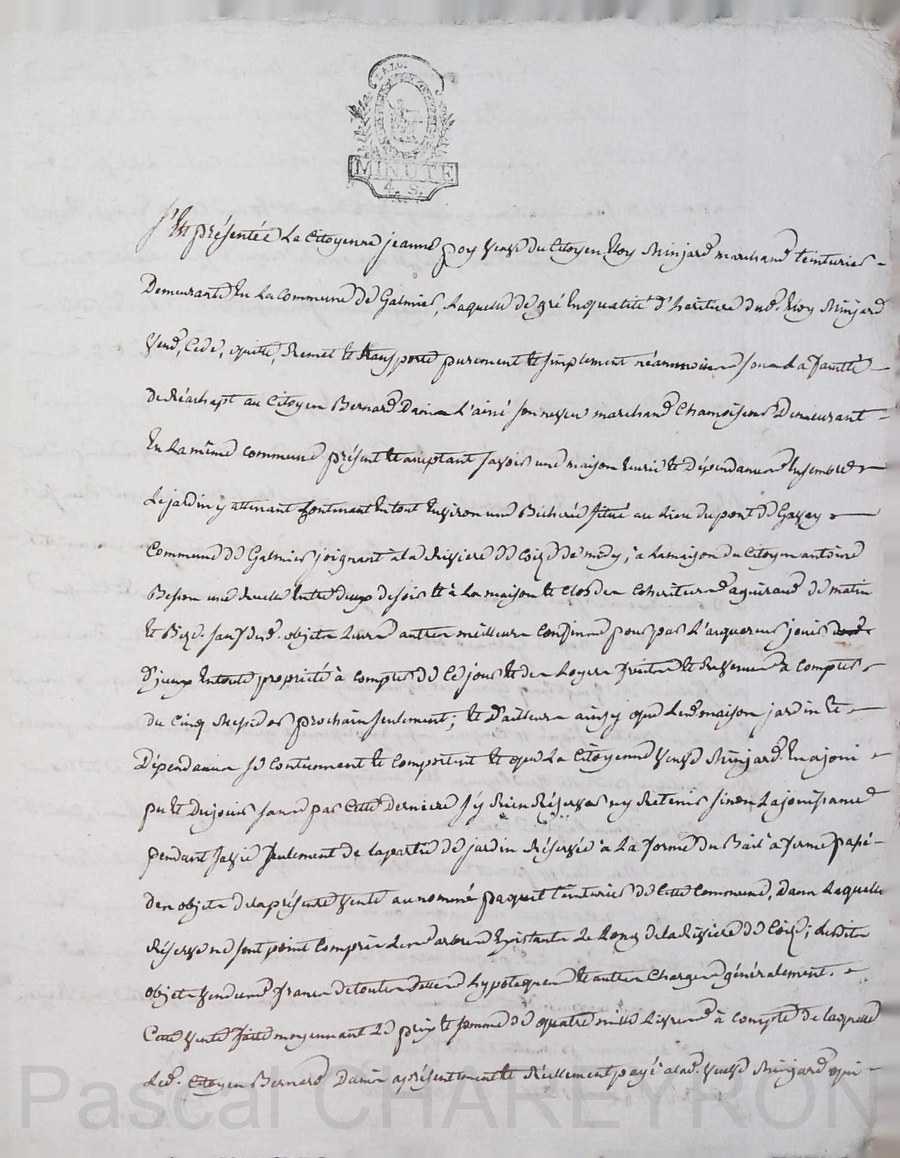 LA LOI
MINUTE
4. S.
S'est présentée La Citoyenne jeanne poy veuve du Citoyen Eloy Minjard marchand teinturier
Demeurante En La Commune de Galmier, Laquelle de gré En qualité d'héritiere dud. Eloy Minjard
Vend, Cede, quitte, Remet et transporte purement et simplement néanmoins sous La faculté
de Réachapt au Citoyen Bernard Damon L'ainé son neveu marchand Chamoiseur Demeurant
En La même commune présent et acceptant savoir une maison Ecurie et Dépendances Ensemble
Le jardin y attenant Contenant En tout Environ une Bicherée situé au Lieu du pont de Gavey
Commune de Galmier joignant à la Riviere de Coize de midy, à La maison du Citoyen antoine
Besson une Ruelle Entre deux de soir et à La maison et Clos des Cohéritiers aguiraud de matin
et Bize. sauf desd. objets Leurs autres meilleurs Confins pour par L'acquereur jouir
D'jceux En toute propriété à compter de Ce jour et des Loyers fruits et Revenus à Compter
du Cinq Messidor prochain seulement; et D'ailleurs ainsy que Lesd. maison jardin et
Dépendances se Contiennent et Comportent et que La Citoyenne Veuve Minjard En a joui
pu et Du jouir sans par Cette derniere s'y Rien Réserver ny Retenir sinon La jouissance
pendant sa vie seulement de la partie de jardin Réservée à La forme du Bail à ferme passé
des objets de la présente Vente au nommé paquet teinturier de Cette Commune, Dans Laquelle
Réserve ne sont point Compris Les arbres Existants Le Long de la Riviere de Coize; Lesdits
objets Vendus francs de toutes dettes hypoteques et autres Charges généralement.
Cette Vente faite moyennant Le prix et somme de quatre mille Livres à compte de laquelle
Led. Citoyen Bernard Damon a présentement et Réellement payé à lad. Veuve Minjard qui
Pascal CHAREYRON